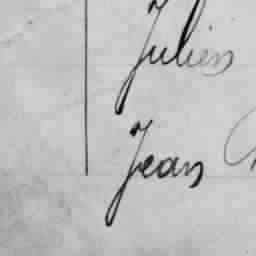 Julien
Jean